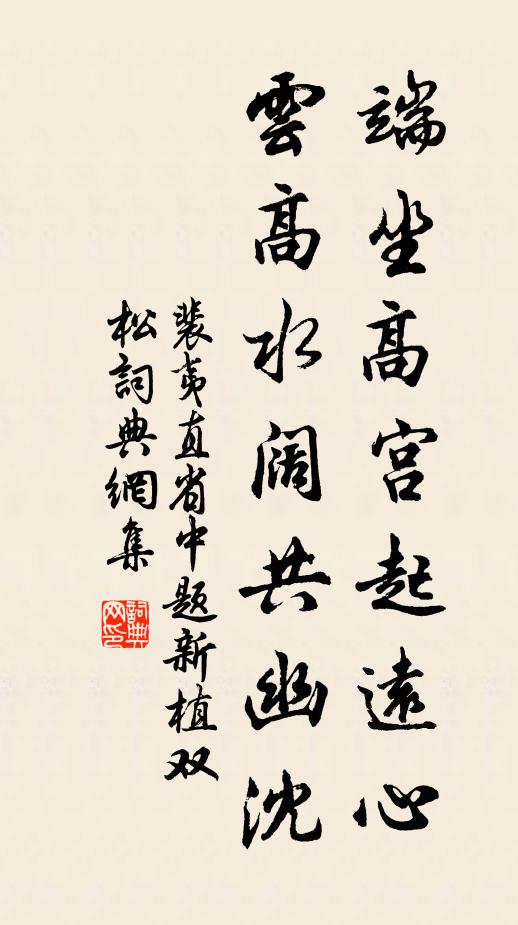 端坐高宫起遠心
雲高水阔共幽沈
裴夷直省中题新植双
松詞典網集
詞典网印